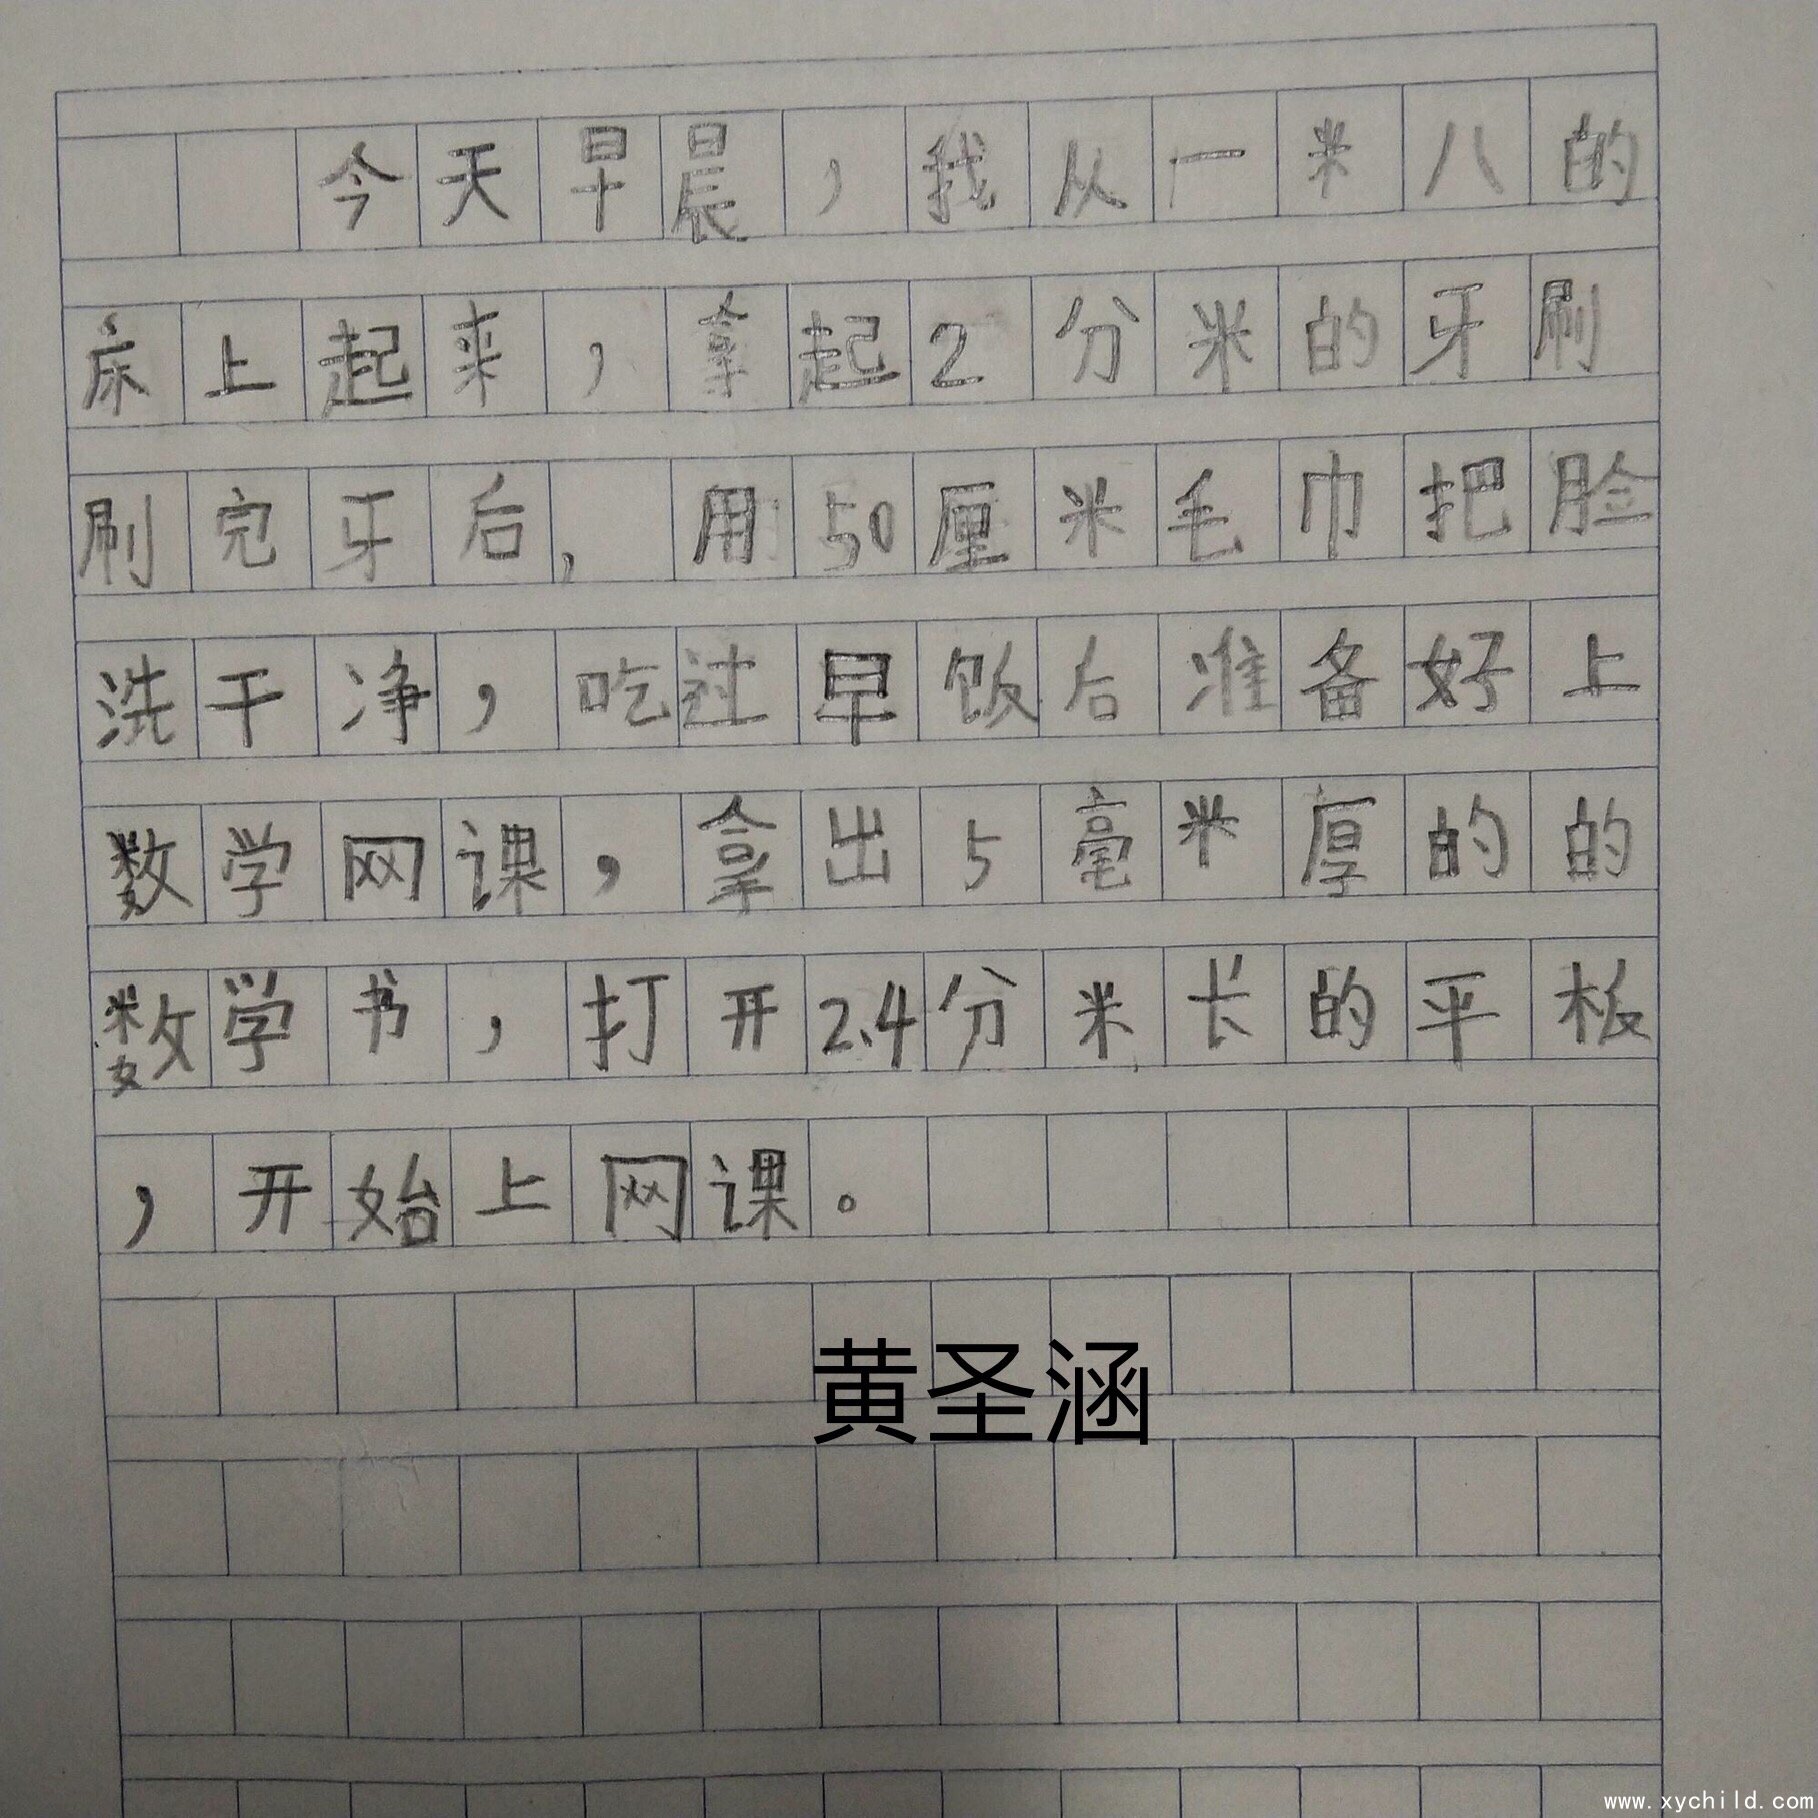 今天早晨，我从一米八的
床上起来，拿起2分米的牙刷
刷完牙后，用50厘米毛巾把脸
洗干净，吃过早饭后准备好上
数学网课，拿出5毫米厚的的
数学书，打开2.4分米长的平板
，开始上网课。
黄圣涵
www.xychild.com